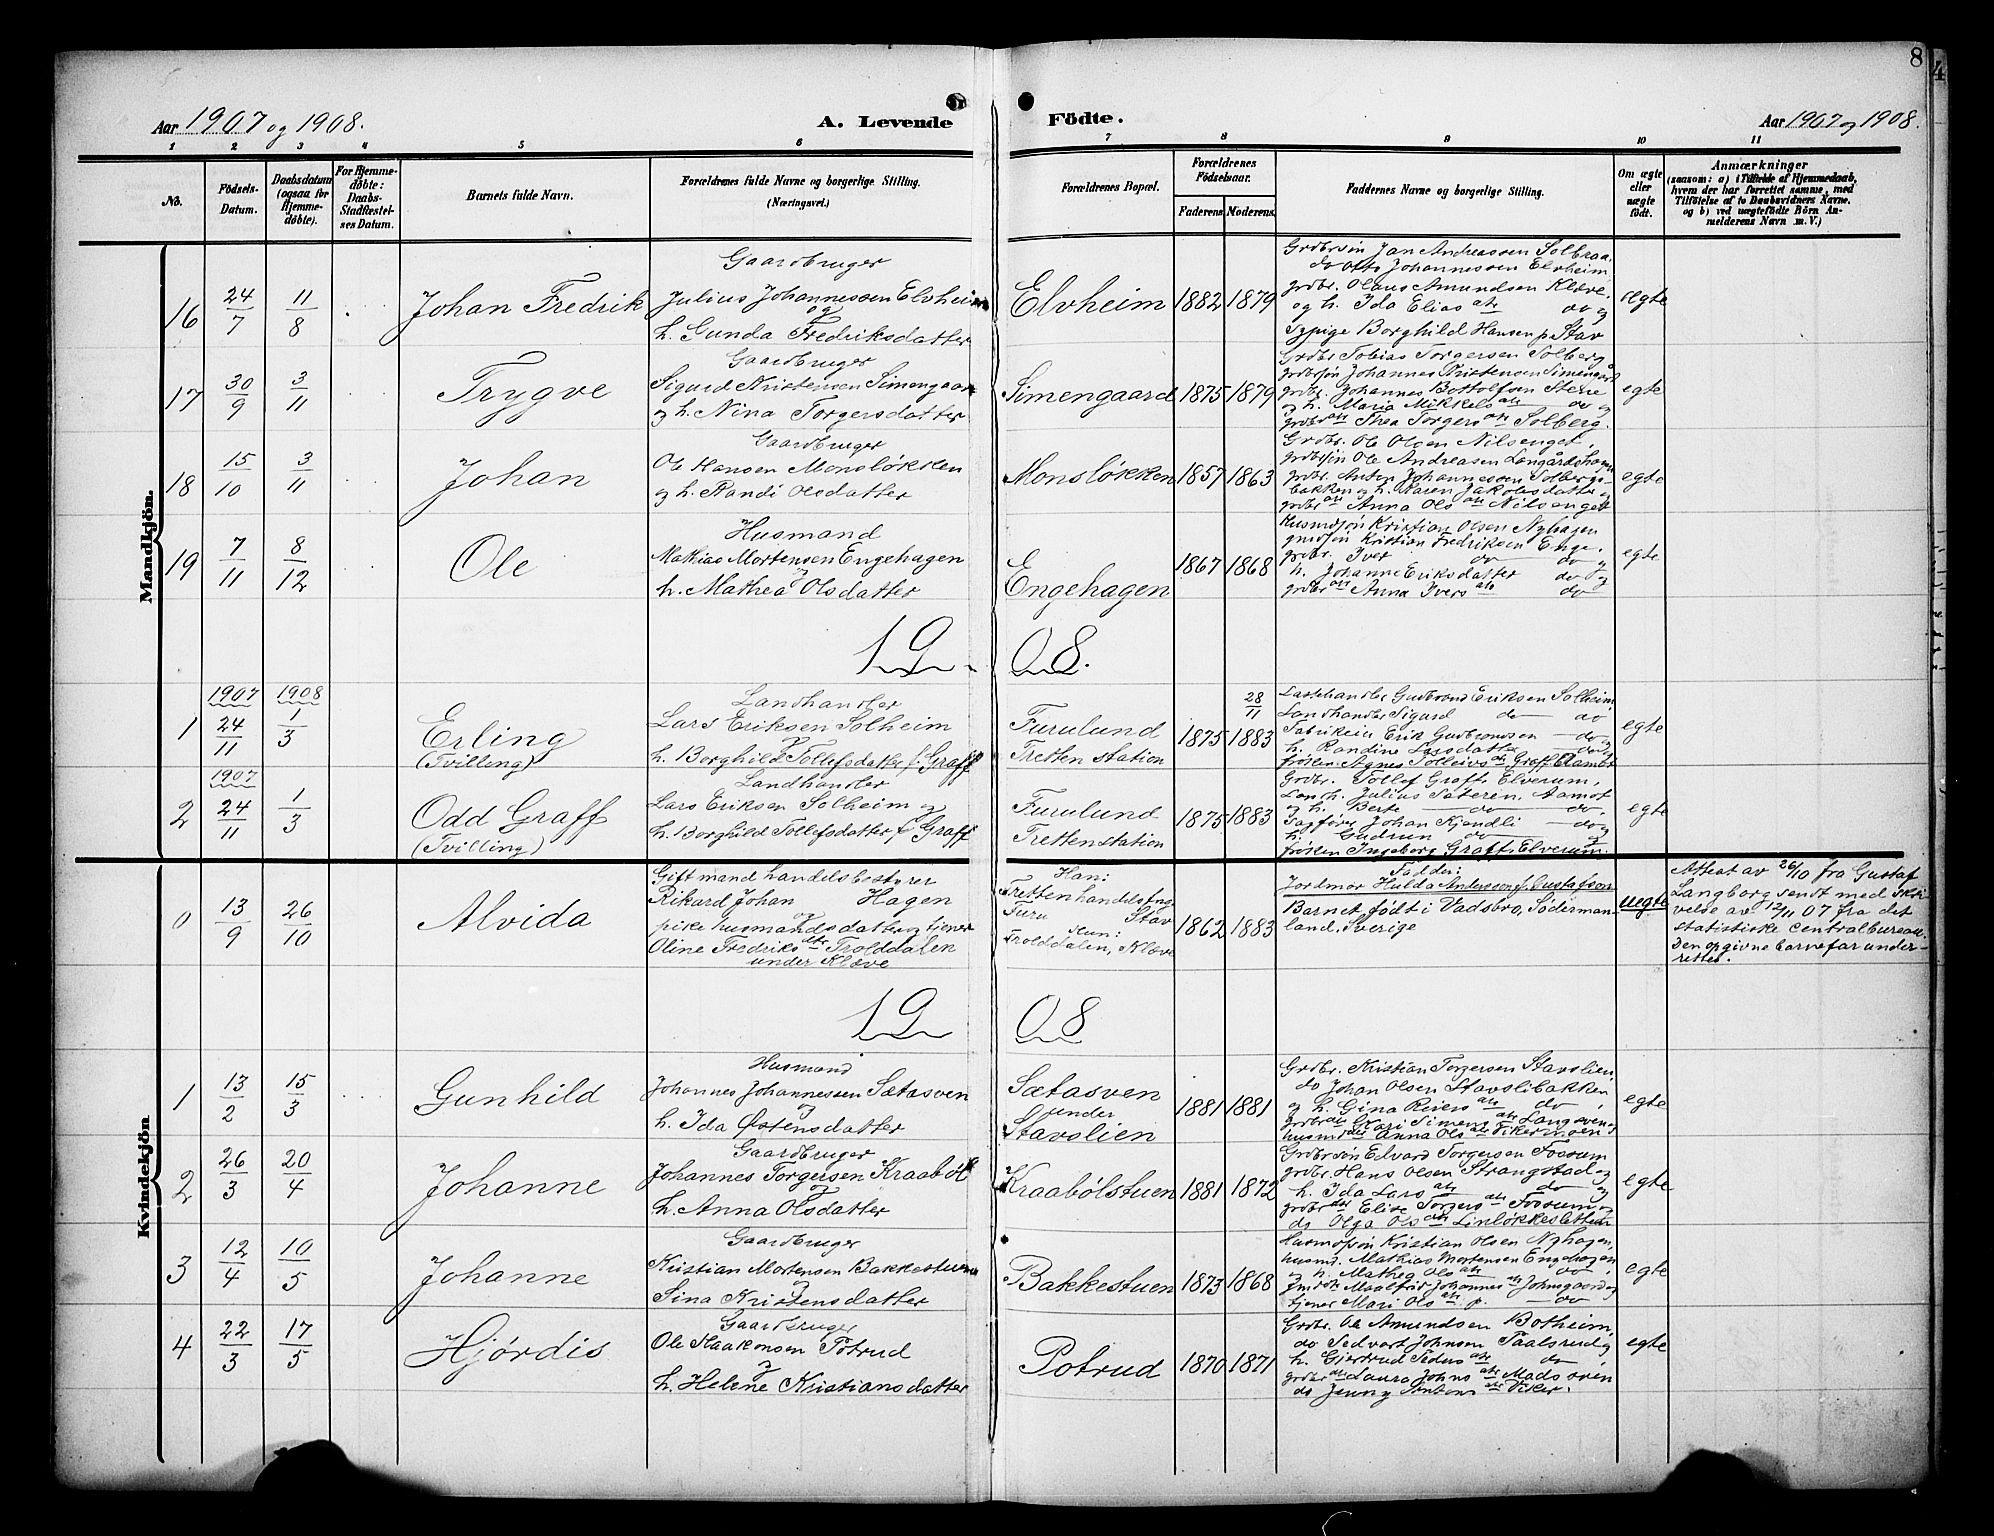 8
Aar 1907 og 1908.
A. Levende Födte.
Aar 1907 og 1908.
1 2 3 4 5 6 7 8 9 10 11
No.
Födsels-Datum.
Daabsdatum (ogsaa for Hjemme-döbte).
For Hjemme-döbte: Daabs-Stadfæstel-ses Datum.
Barnets fulde Navn.
Forældrenes fulde Navne og borgerlige Stilling.
(Næringsvei.)
Forældrenes Bopæl.
Forældrenes Födselsaar.
Faderens. Moderens.
Faddernes Navne og borgerlige Stilling.
Om ægte eller uægte födt.
Anmærkninger
(saasom: a) i Tilfælde af Hjemmedaab,
hvem der har forrettet samme, med
Tilföielse af to Daabsvidners Navne,
og b) ved uægtefödte Börn An-
melderens Navn m. V.)
Mandkjön.
16 24/7 11/8 Johan Fredrik
Gaardbruger
Julius Johannessen Elvheim
og
h. Gunda Fredriksdatter
Elvheim 1882 1879
Grdbrsön Jan Andreassen Solbraa
do Otto Johannessen Elvheim
grdbr. Olaus Amundsen Klæve,
og h. Ida Elias dtr do og
Sypige Borghild Hansen p. Stav
ægte
17 30/9 3/11 Trygve
Gaardbruger
Sigurd Kristensen Simengaard
og h. Nina Torgersdatter
Simengaard 1875 1879
Grdbr. Tobias Torgersen Solberg
grdbrsön Johannes Kristensen Simengard
grdbr. Johannes Bottolfsen Stene
og h. Maria Mikkels dtr do og
grdbr dtr Thea Torgers dtr Solberg.
egte
18 15/10 3/11 Johan
Gaardbruger
Ole Hansen Monsløkken
og h. Randi Olsdatter
Monsløkken 1857 1863
Grdbr. Ole Olsen Nilsenget,
grdbrsön Ole Andreasen Langårdshagen
grdbr. Anton Johannessen Solbergs-
bakken og h. Karen Jakobsdatter og
grdbr dtr Anna Ols dtr Nilsenget
egte
19 7/11 8/12 Ole
Husmand
Mathias Mortensen Engehagen
og
h. Mathea Olsdatter
Engehagen 1867 1868
Husmdsön Kristian Olsen Nyhagen
gmdsön Kristian Fredriksen Enge,
grdbr. Iver do do og
h. Johanne Eriksdatter do og
grdbr dtr Anna Ivers dtr do
egte
1908.
1 1907 24/11 1908 1/3 Erling
(Tvilling)
Landhandler
Lars Eriksen Solheim
og
h. Borghild Tollefsdatter f. Graff
Furulund
Tretten station
1875 28/11 1883
Landhandler Sigurd do do
Fabrikeier Erik Gudbrandsen do og
h. Randine Larsdatter do og
egte
2 1907 24/11 1/3 Odd Graff
(Tvilling)
Landhandler
Lars Eriksen Solheim og
h. Borghild Tollefsdatter f. Graff
Furulund
Tretten station
1875 1883
Grdbr. Tollef Graff, Elverum,
Landh. Julius Sæteren, Aamot
og h. Berte do do,
Sagfører Johan Kjendli do og
h. Gudrun do og
frøken Ingeborg Graff, Elverum.
egte
Kvindekjön
0 13/9 26/10 Alvida
Gift mand handelsbestyrer
Rikard Johan Hagen
og
pike husmandsdatter, tjener
Oline Fredriks dtr Trolddalen
under Klæve
Han:
Stav
Hun:
Trolddalen, Klæve
1862 1883
Fadder:
Jordmor Hulda Andersson f. Gustafson
Barnet født i Vadsbro, Söderman-
land, Sverige
uegte
Attest av 26/10 fra Gustaf
Langborg sendt med skri-
velse av 12/11 07 fra det
statistiske centralbureau.
Den opgivne barnefar under-
rettet.
1908
1 13/2 15/3 Gunhild
Husmand
Johannes Johannessen Sætasven
og
h. Ida Østensdatter
Sætasven
under
Stavslien
1881 1881
Grdbr. Kristian Torgersen Stavslien,
do Johan Olsen Stavslibakken
og h. Gina Reiers dtr do,
husmds dtr Anna Ols dtr Vikermoen
egte
2 26/3 20/4 Johanne
Gaardbruger
Johannes Torgersen Kraabøl
og
h. Anna Olsdatter
Kraabölstuen 1881 1872
Grdbrsön Edvard Torgersen Fossum
grdbr. Hans Olsen Strangstad og
h. Ida Lars dtr do og
grdbr dtr Elise Torgers dtr Fossum og
do Olga Ols dtr Linløkkesletten
egte
3 12/4 10/5 Johanne
Gaardbruger
Kristian Mortensen Bakkestuen
og
Sina Kristensdatter
Bakkestuen 1873 1868
Husmdsön Kristian Olsen Nyhagen,
husmd. Mathias Mortensen Engehagen
og h. Mathea Ols dtr do,
tjener Mari Ols dtr p. do
egte
4 22/3 17/5 Hjørdis
Gaardbruger
Ole Haakensen Potrud
og
h. Helene Kristiansdatter
Potrud 1870 1871
Grdbr. Ole Amundsen Botheim,
do Sedvart Johnsen Taalsrud og
h. Gjertrud Peders dtr do,
grdbr dtr Laura Johns dtr Madsoven
do Jenny Antons dtr Viker.
egte